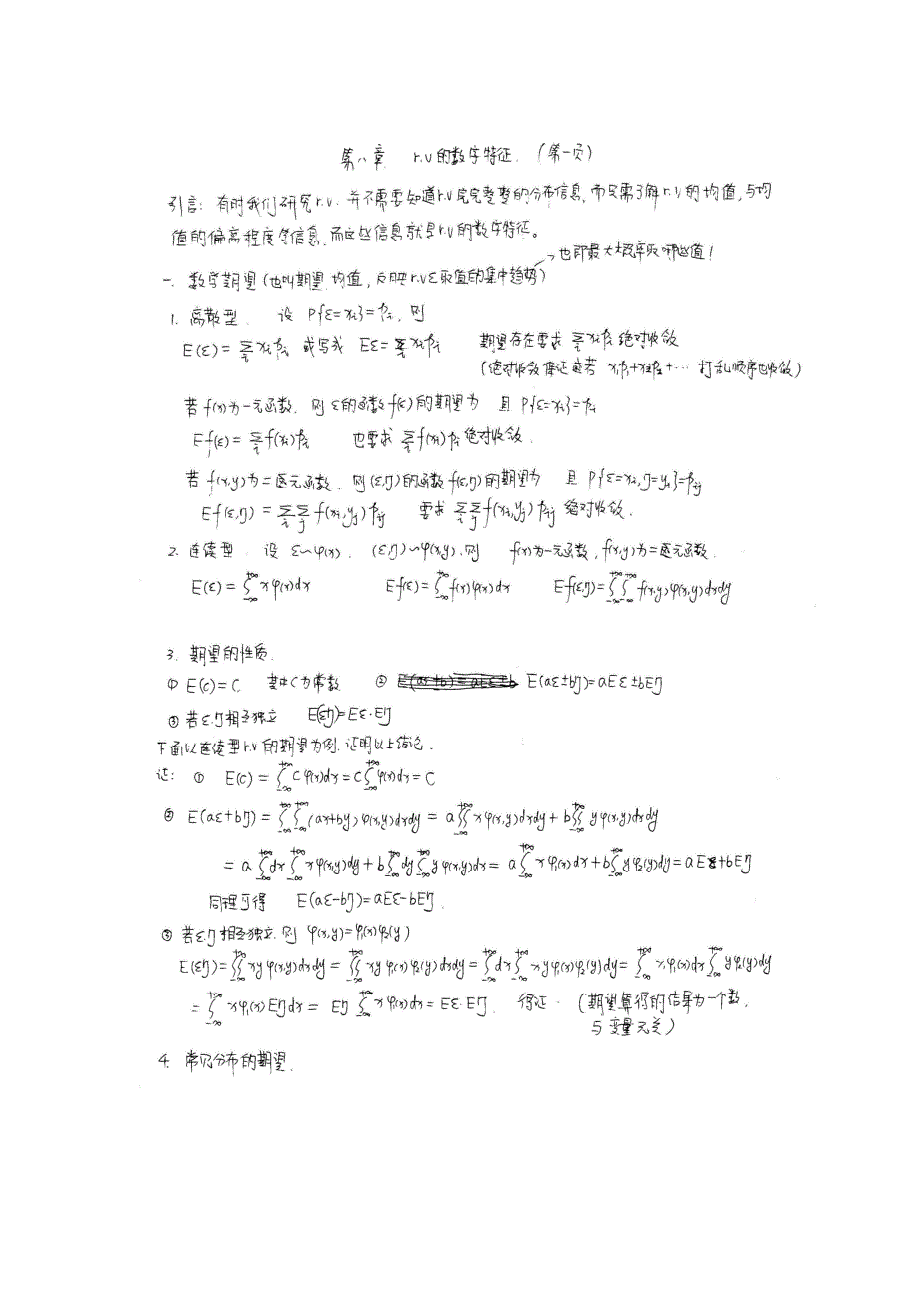 第八章 r.v的数字特征.（第一页）
引言：有时我们研究r.v. 并不需要知道r.v 完完整整的分布信息，而只需了解r.v的均值，与均
值的偏离程度等信息，而这些信息就是r.v的数字特征。
→也即最大概率取哪些值！
一. 数学期望(也叫期望，均值，反映r.vε取值的集中趋势)
1. 离散型. 设 P{ε=xi}=pi，则
E(ε)=∑i xipi 或写成 Eε=∑i xipi 期望存在要求 ∑i xipi 绝对收敛
(绝对收敛保证 若 x1p1+x2p2+⋯ 打乱顺序也收敛)
若f(x)为一元函数，则ε的函数f(ε)的期望为 且 P{ε=xi}=pi
Ef(ε)=∑i f(xi)pi 也要求 ∑i f(xi)pi 绝对收敛.
若f(x,y)为二元函数. 则(ε,η)的函数f(ε,η)的期望为 且 P{ε=xi,η=yj}=pij
Ef(ε,η)=∑i∑j f(xi,yj)pij 要求 ∑i∑j f(xi,yj)pij 绝对收敛.
2. 连续型. 设 ε~φ(x). (ε,η)~φ(x,y).则 f(x)为一元函数，f(x,y)为二元函数.
E(ε)=∫_{-∞}^{+∞} xφ(x)dx Ef(ε)=∫_{-∞}^{+∞} f(x)φ(x)dx Ef(ε,η)=∫_{-∞}^{+∞}∫_{-∞}^{+∞} f(x,y)φ(x,y)dxdy
3. 期望的性质.
① E(c)=C 其中C为常数 ② E(aε±bη)=aEε±bEη
③ 若ε.η相互独立 E(εη)=Eε·Eη
下面以连续型r.v的期望为例，证明以上结论.
证： ① E(c)=∫_{-∞}^{+∞} Cφ(x)dx=C∫_{-∞}^{+∞} φ(x)dx=C
② E(aε+bη)=∫_{-∞}^{+∞}∫_{-∞}^{+∞} (ax+by)φ(x,y)dxdy=a∬_{-∞}^{+∞} xφ(x,y)dxdy+b∬_{-∞}^{+∞} yφ(x,y)dxdy
=a∫_{-∞}^{+∞} dx∫_{-∞}^{+∞} xφ(x,y)dy+b∫_{-∞}^{+∞} dy∫_{-∞}^{+∞} yφ(x,y)dx=a∫_{-∞}^{+∞} xφ1(x)dx+b∫_{-∞}^{+∞} yφ2(y)dy=aEε+bEη
同理可得 E(aε-bη)=aEε-bEη.
③ 若ε.η相互独立. 则 φ(x,y)=φ1(x)φ2(y)
E(εη)=∬_{-∞}^{+∞} xyφ(x,y)dxdy=∬_{-∞}^{+∞} xyφ1(x)φ2(y)dxdy=∫_{-∞}^{+∞} dx∫_{-∞}^{+∞} xyφ1(x)φ2(y)dy=∫_{-∞}^{+∞} xφ1(x)dx∫_{-∞}^{+∞} yφ2(y)dy
=∫_{-∞}^{+∞} xφ1(x)Eηdx=Eη∫_{-∞}^{+∞} xφ1(x)dx=Eε·Eη. 得证. (期望算得的结果为一个数，
与变量无关)
4. 常见分布的期望.